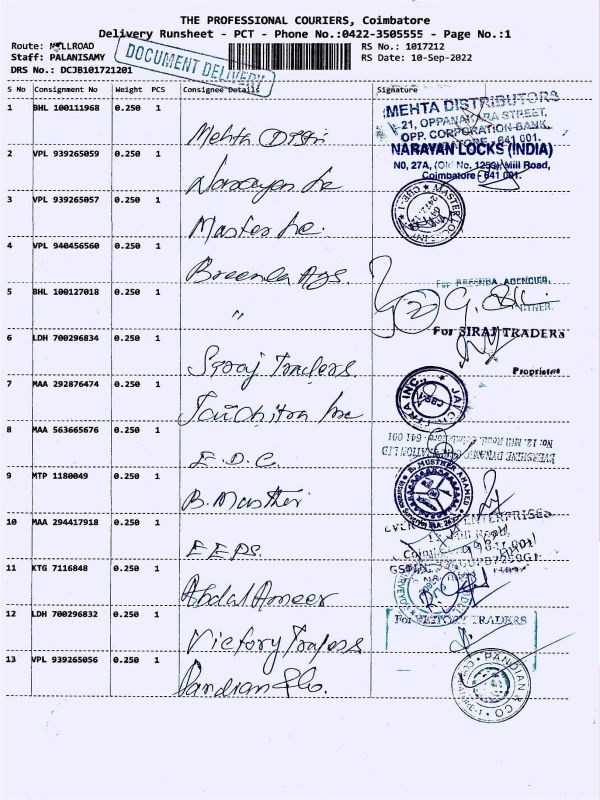 THE PROFESSIONAL COURIERS, Coimbatore
Delivery Runsheet - PCT - Phone No.:0422-3505555 - Page No.:1
Route: MILLROAD
RS No.: 1017212
Staff: PALANISAMY
RS Date: 10-Sep-2022
DRS No.: DCJB101721201
DOCUMENT DELIVERY
S No Consignment No Weight PCS Consignee Details Signature
1 BHL 100111968 0.250 1
Mehta Distri
MEHTA DISTRIBUTORS
21, OPPANAKARA STREET,
OPP. CORPORATION BANK,
641 001.
2 VPL 939265059 0.250 1
Narayan Lo
NARAYAN LOCKS (INDIA)
N0, 27A, (Old No. 1259), Mill Road,
Coimbatore - 641 001.
3 VPL 939265057 0.250 1
Master Lo.
MASTER LOCK
CBE-1
4 VPL 940456560 0.250 1
Breenda Ags.
For BREENDA AGENCIES,
5 BHL 100127018 0.250 1
"
2
6 LDH 700296834 0.250 1
Siraj Traders.
For SIRAJ TRADERS
Proprietor
7 MAA 292876474 0.250 1
Jaichitra Inc
JAICHITRA INC.
8 MAA 563665676 0.250 1
E.D.C.
EVERSHINE DYNAMIC
No: 12, Mill Road, Coimbatore - 641 001
9 MTP 1180049 0.250 1
B. Musther
B. MUSTHER AHAMED
10 MAA 294417918 0.250 1
E E P S.
ENTERPRISES
11 KTG 7116848 0.250 1
Abdul Ameer
12 LDH 700296832 0.250 1
Victory Traders
For VICTORY TRADERS
13 VPL 939265056 0.250 1
Pandian & Co.
PANDIAN & CO
COIMBATORE-1